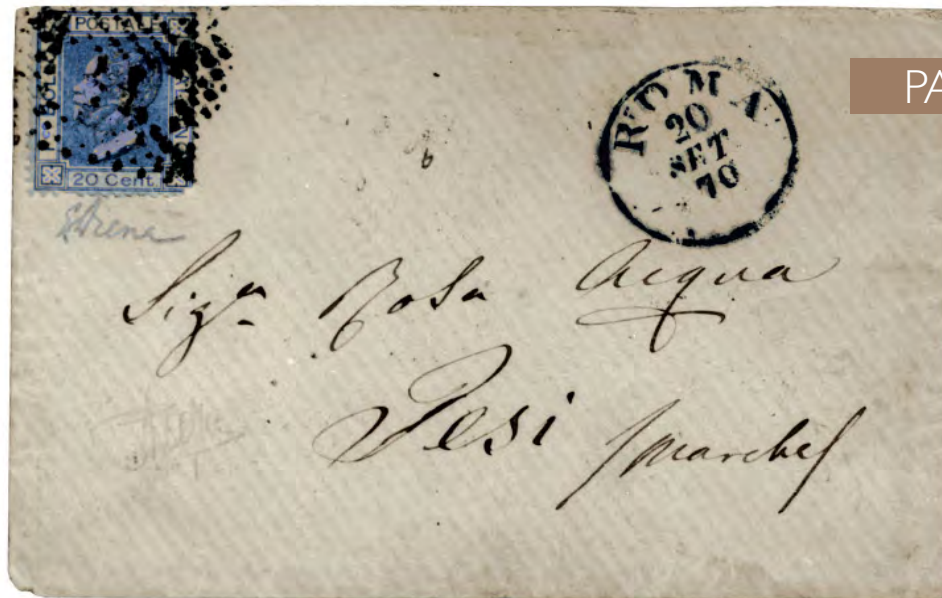 POSTALE
20 Cent.
ROMA
20
SET
70
PA
Sig.ra Rosa Acqua
Jesi (Marche)